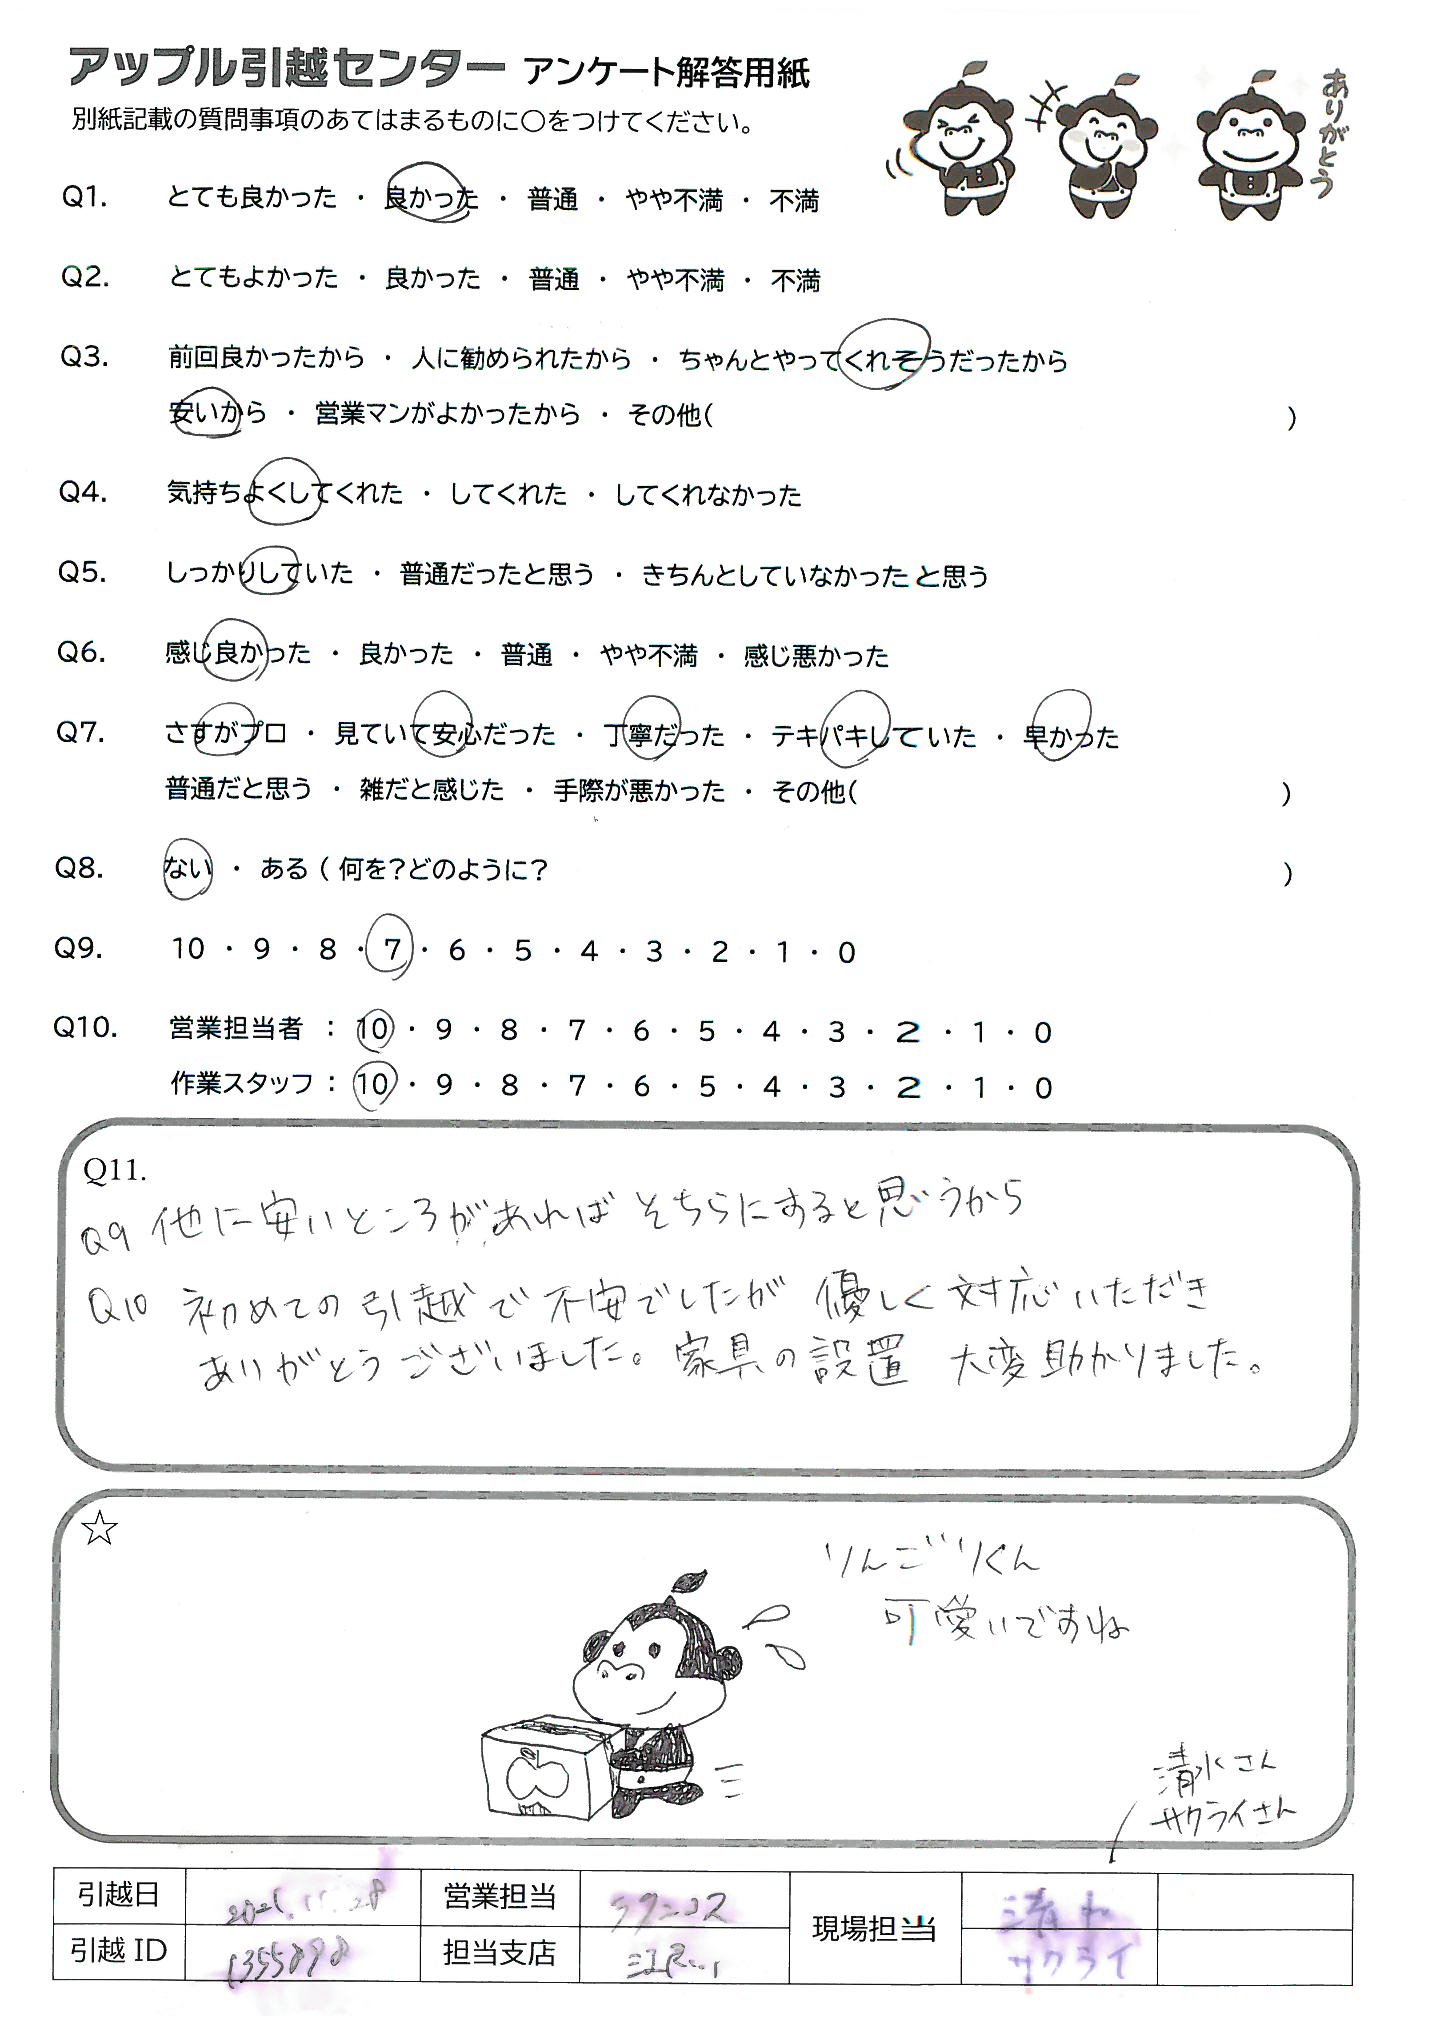 アップル引越センター アンケート解答用紙
別紙記載の質問事項のあてはまるものに〇をつけてください。
ありがとう
Q1. とても良かった ・ 良かった ・ 普通 ・ やや不満 ・ 不満
Q2. とてもよかった ・ 良かった ・ 普通 ・ やや不満 ・ 不満
Q3. 前回良かったから ・ 人に勧められたから ・ ちゃんとやってくれそうだったから
安いから ・ 営業マンがよかったから ・ その他( )
Q4. 気持ちよくしてくれた ・ してくれた ・ してくれなかった
Q5. しっかりしていた ・ 普通だったと思う ・ きちんとしていなかったと思う
Q6. 感じ良かった ・ 良かった ・ 普通 ・ やや不満 ・ 感じ悪かった
Q7. さすがプロ ・ 見ていて安心だった ・ 丁寧だった ・ テキパキしていた ・ 早かった
普通だと思う ・ 雑だと感じた ・ 手際が悪かった ・ その他( )
Q8. ない ・ ある ( 何を?どのように? )
Q9. 10 ・ 9 ・ 8 ・ 7 ・ 6 ・ 5 ・ 4 ・ 3 ・ 2 ・ 1 ・ 0
Q10. 営業担当者 : 10 ・ 9 ・ 8 ・ 7 ・ 6 ・ 5 ・ 4 ・ 3 ・ 2 ・ 1 ・ 0
作業スタッフ : 10 ・ 9 ・ 8 ・ 7 ・ 6 ・ 5 ・ 4 ・ 3 ・ 2 ・ 1 ・ 0
Q11.
Q9 他に安いところがあれば そちらにすると思うから
Q10 初めての引越で不安でしたが 優しく対応いただき
ありがとうございました。家具の設置 大変助かりました。
☆
りんごりくん
可愛いですね
清水さん
サクライさん
引越日 営業担当 現場担当 清水
引越ID 1355898 担当支店 サクライ